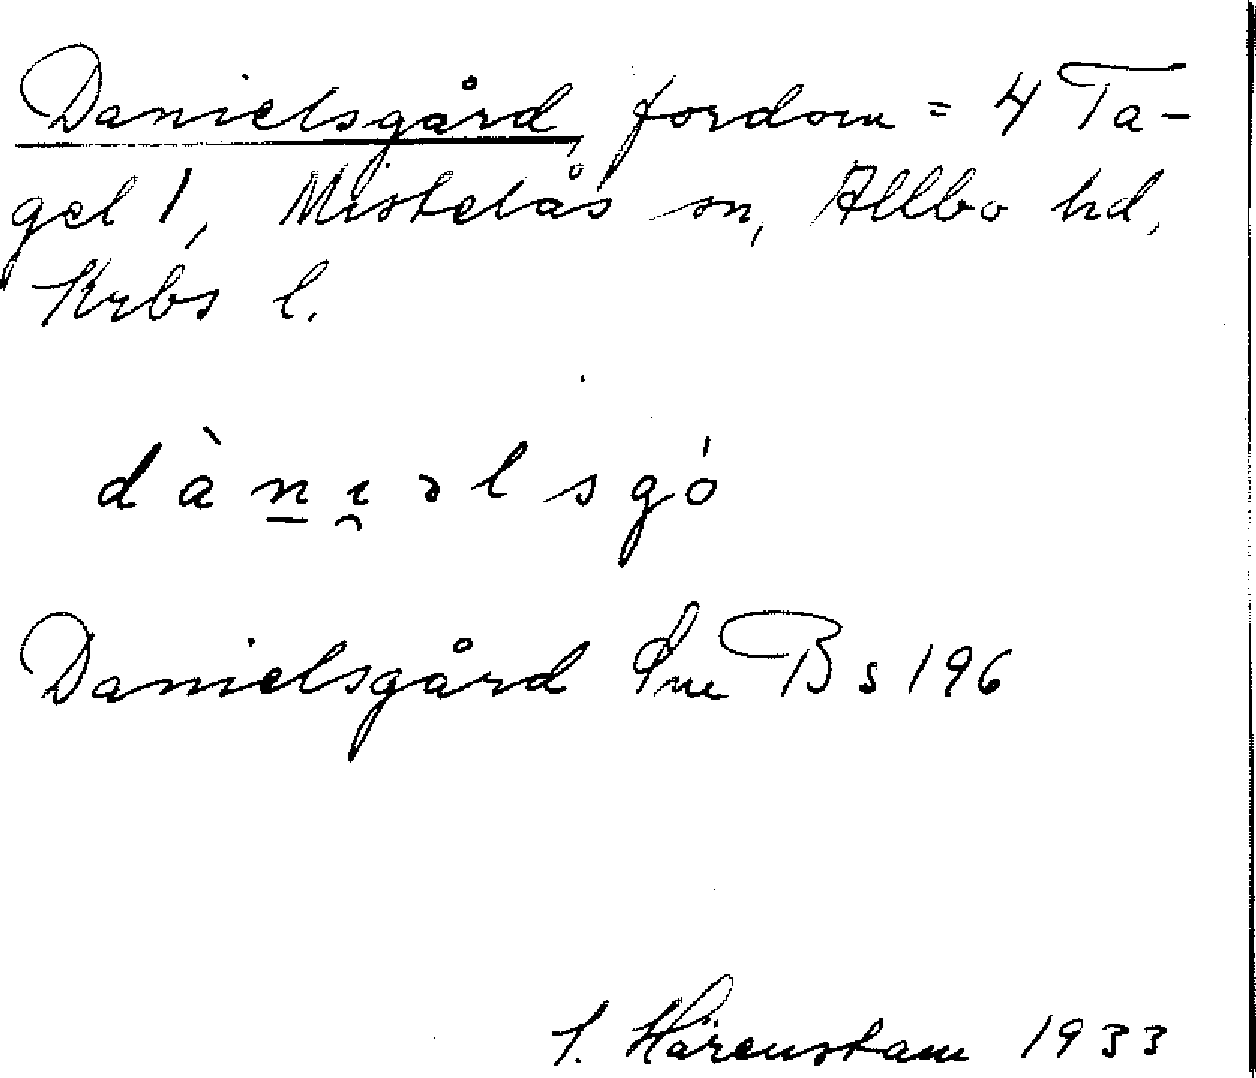 Danielsgård, fordom = 4 Ta-
gel 1, Mistelås sn, Allbo hd,
Krbs l.
dàn̲ı̯ɔlsgó
Danielsgård B s 196
J. Härenstam 1933